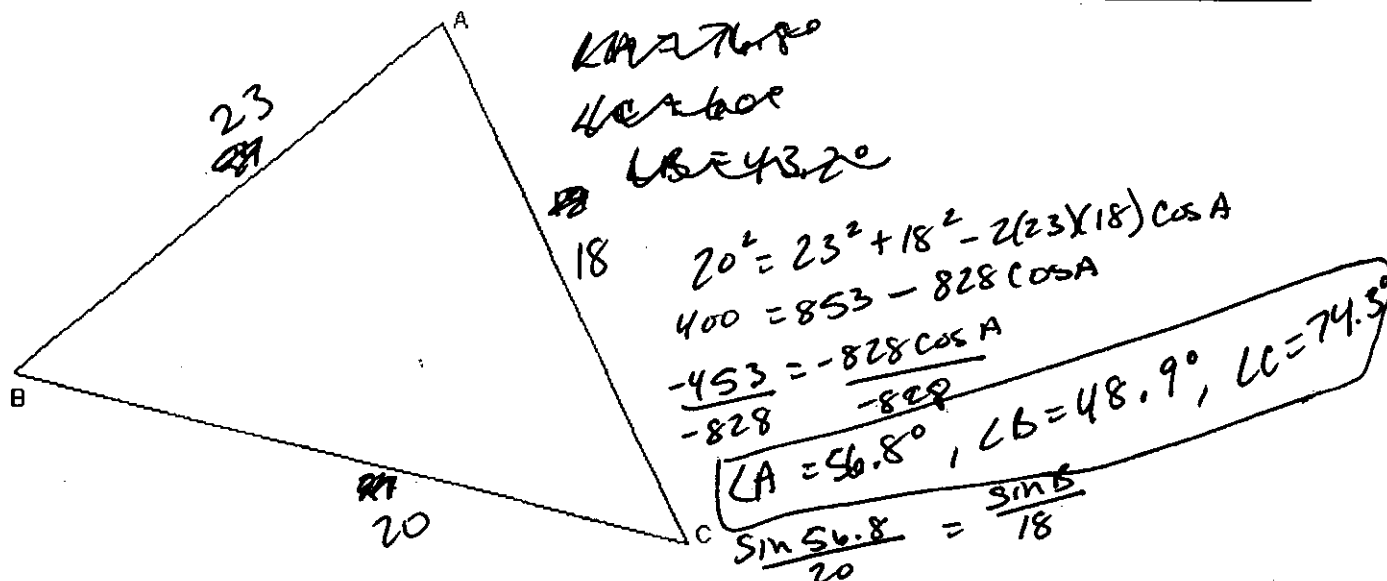 A
23
∠A = 76.8°
∠C = 60°
∠B = 43.2°
18
20² = 23² + 18² - 2(23)(18) cos A
400 = 853 - 828 cos A
-453/-828 = -828 cos A/-828
∠A = 56.8°, ∠B = 48.9°, ∠C = 74.3°
sin 56.8/20 = sin B/18
B
20
C